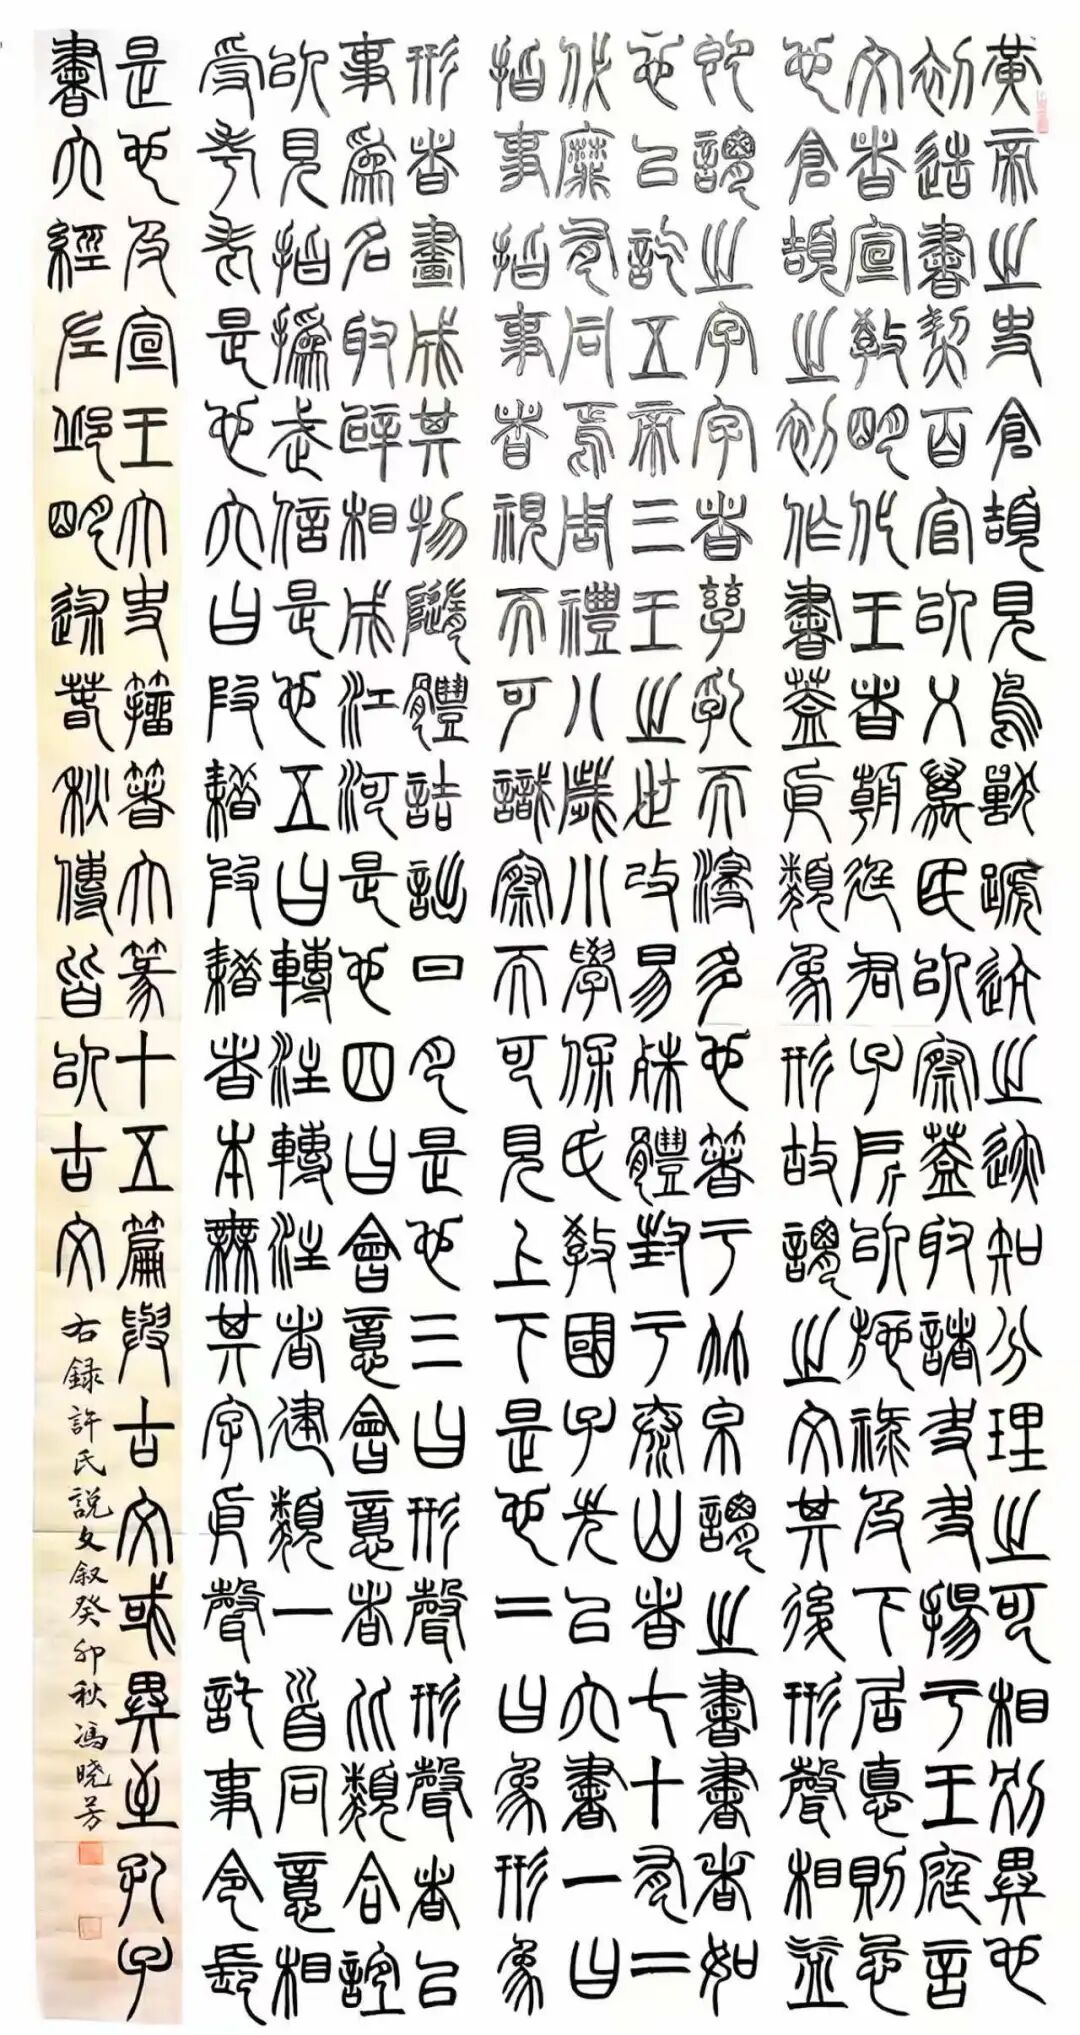 黄帝之史倉頡見鳥獸蹏迒之迹知分理之可相別異也
初造書契百官以乂萬民以察蓋取諸夬夬揚于王庭言
文者宣教明化王者朝廷君子所以施祿及下居德則忌
也倉頡之初作書蓋依類象形故謂之文其後形聲相益
即謂之字字者孳乳而浸多也著于竹帛謂之書書者如
也以訖五帝三王之世改易殊體封于泰山者七十有二
代靡有同焉周禮八歲小學保氏教國子先以六書一曰
指事指事者視而可識察而可見上下是也二曰象形象
形者畫成其物隨體詰詘日月是也三曰形聲形聲者以
事爲名取譬相成江河是也四曰會意會意者比類合誼
以見指撝武信是也五曰轉注轉注者建類一首同意相
受考老是也六曰叚耤叚耤者本無其字依聲託事令長
是也及宣王大史籀著大篆十五篇與古文或異至孔子
書六經左邱明述春秋傳皆以古文
右録許氏説文叙癸卯秋馮晓芳